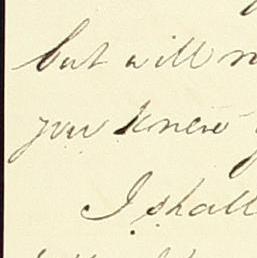 but will
you knew
I shall